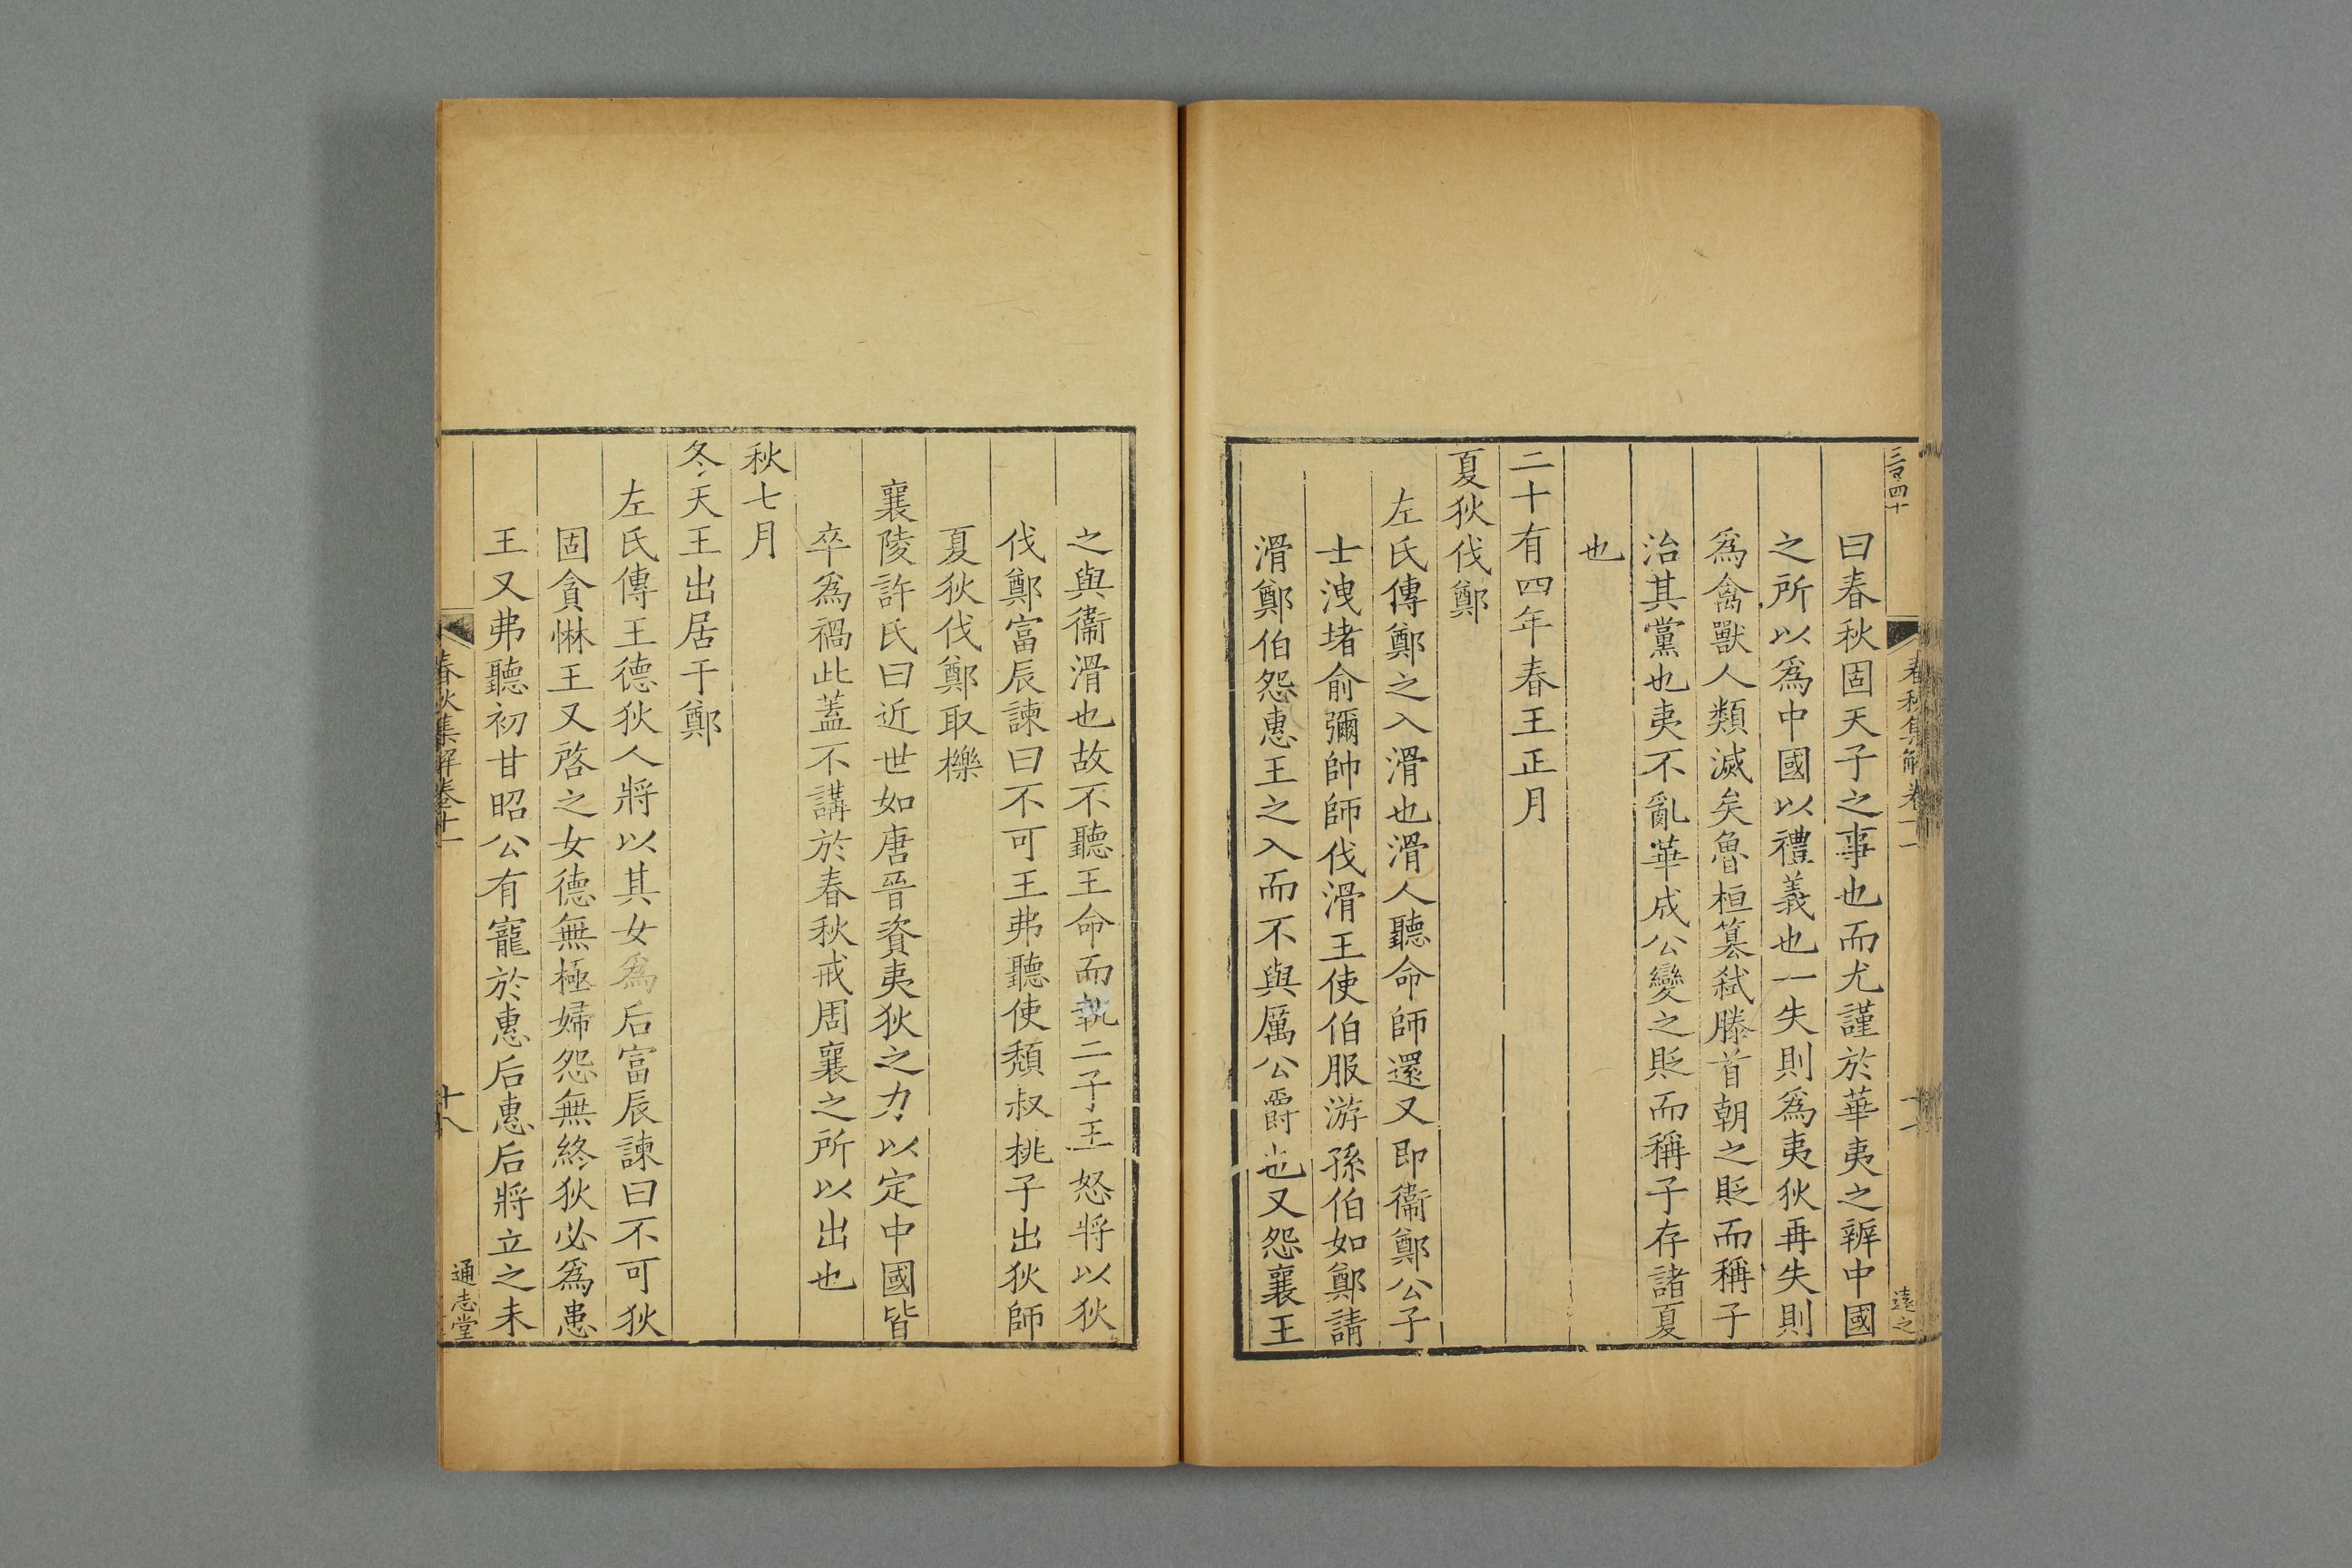 三百四十
春秋集解卷十一
遠之
曰春秋固天子之事也而尤謹於華夷之辨中國
之所以爲中國以禮義也一失則爲夷狄再失則
爲禽獸人類滅矣魯桓簒弑滕首朝之貶而稱子
治其黨也夷不亂華成公變之貶而稱子存諸夏
也
二十有四年春王正月
夏狄伐鄭
左氏傳鄭之入滑也滑人聽命師還又即衞鄭公子
士洩堵俞彌帥師伐滑王使伯服游孫伯如鄭請
滑鄭伯怨惠王之入而不與厲公爵也又怨襄王
之與衞滑也故不聽王命而執二子王怒將以狄
伐鄭富辰諫曰不可王弗聽使頽叔桃子出狄師
夏狄伐鄭取櫟
襄陵許氏曰近世如唐晉資夷狄之力以定中國皆
卒爲禍此蓋不講於春秋戒周襄之所以出也
秋七月
冬天王出居于鄭
左氏傳王德狄人將以其女爲后富辰諫曰不可狄
固貪惏王又啓之女德無極婦怨無終狄必爲患
王又弗聽初甘昭公有寵於惠后惠后將立之未
春秋集解卷十一
十八
通志堂